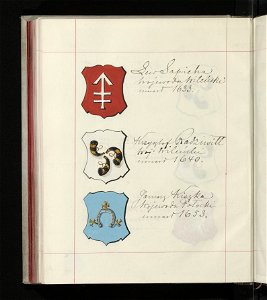 Lew Sapieha
wojewoda Wileński
umarł 1633.
Krzysztof Radziwiłł
woj. Wileński
umarł 1640.
Janusz Kiszka
Wojewoda Połocki
umarł 1653.